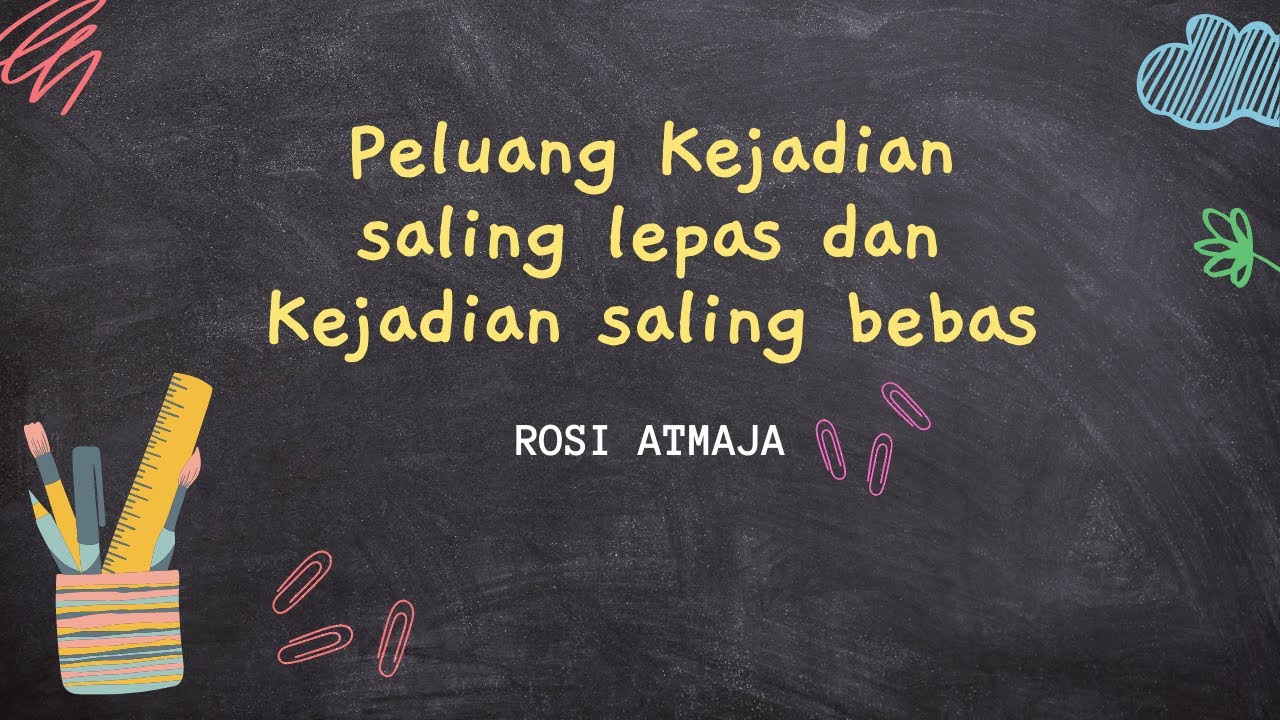 Peluang Kejadian
saling lepas dan
Kejadian saling bebas
ROSI ATMAJA